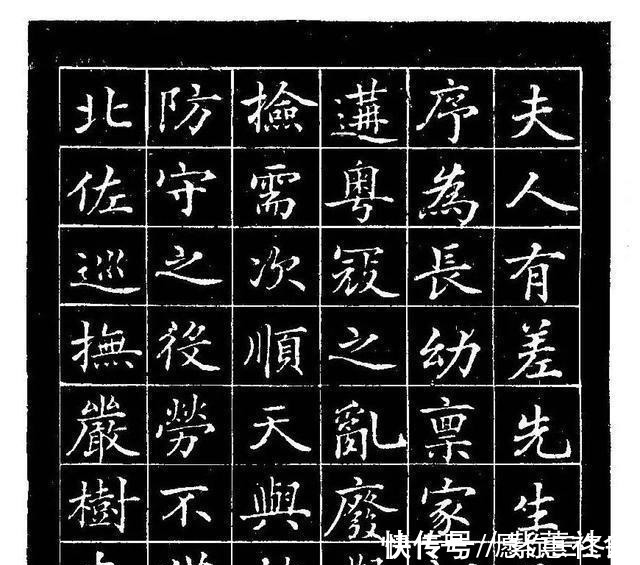 夫人有差先生
序為長幼稟家
遘粵冦之亂廢
檢需次順天與
防守之後勞不
北佐巡撫嚴樹
快传号